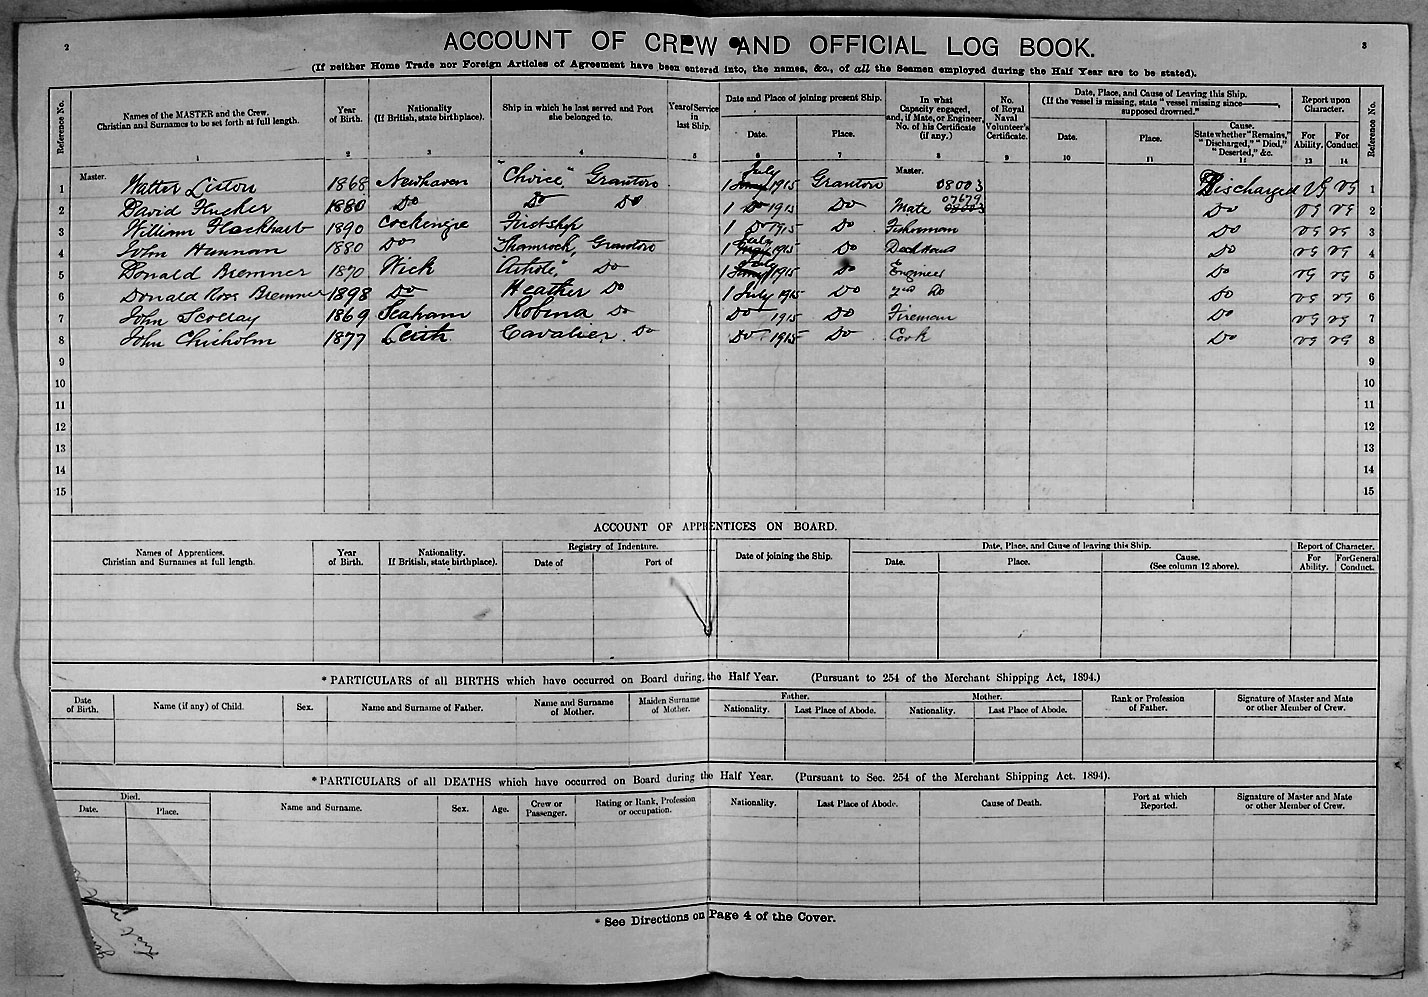 2
3
ACCOUNT OF CREW AND OFFICIAL LOG BOOK.
(If neither Home Trade nor Foreign Articles of Agreement have been entered into, the names, &c., of all the Seamen employed during the Half Year are to be stated).
Reference No. Names of the MASTER and the Crew. Christian and Surnames to be set forth at full length. Year of Birth. Nationality (If British, state birthplace). Ship in which he last served and Port she belonged to. Year of Service in last Ship. Date and Place of joining present Ship. In what Capacity engaged, and, if Mate, or Engineer, No. of his Certificate (if any). No. of Royal Naval Volunteer's Certificate. Date, Place, and Cause of Leaving this Ship. (If the vessel is missing, state "vessel missing since———, supposed drowned." Report upon Character. Reference No.
Date. Place. Date. Place. Cause. State whether "Remains," "Discharged," "Died," "Deserted," &c. For Ability. For Conduct
1 2 3 4 5 6 7 8 9 10 11 12 13 14
Master. Master.
1 Walter Liston 1868 Newhaven "Choice," Granton 1 July 1915 Granton 08003 Discharged VG VG 1
2 David Flucker 1880 Do Do Do 1 Do 1915 Do Mate 07679 08003 Do VG VG 2
3 William Flockhart 1890 Cockenzie First ship 1 Do 1915 Do Fisherman Do VG VG 3
4 John Hunnam 1880 Do Shamrock, Granton 1 July 1915 Do Deck Do VG VG 4
5 Donald Bremner 1870 Wick Do 1 July 1915 Do Engineer Do VG VG 5
6 Donald Ross Bremner 1898 Do Heather Do 1 July 1915 Do 2nd Do Do VG VG 6
7 John Scollay 1869 Seaham Robina Do Do 1915 Do Fireman Do VG VG 7
8 John Chisholm 1877 Leith Cavalier Do Do 1915 Do Cook Do VG VG 8
9 9
10 10
11 11
12 12
13 13
14 14
15 15
ACCOUNT OF APPRENTICES ON BOARD.
Names of Apprentices. Christian and Surnames at full length. Year of Birth. Nationality. If British, state birthplace). Registry of Indenture. Date of joining the Ship. Date, Place, and Cause of leaving this Ship. Report of Character.
Date of Port of Date. Place. Cause. (See column 12 above). For Ability. For General Conduct.
* PARTICULARS of all BIRTHS which have occurred on Board during the Half Year. (Pursuant to 254 of the Merchant Shipping Act, 1894.)
Date of Birth. Name (if any) of Child. Sex. Name and Surname of Father. Name and Surname of Mother. Maiden Surname of Mother. Father. Mother. Rank or Profession of Father. Signature of Master and Mate or other Member of Crew.
Nationality. Last Place of Abode. Nationality. Last Place of Abode.
* PARTICULARS of all DEATHS which have occurred on Board during the Half Year. (Pursuant to Sec. 254 of the Merchant Shipping Act. 1894).
Died. Name and Surname. Sex. Age. Crew or Passenger. Rating or Rank, Profession or occupation. Nationality. Last Place of Abode. Cause of Death. Port at which Reported. Signature of Master and Mate or other Member of Crew.
Date. Place.
* See Directions on Page 4 of the Cover.